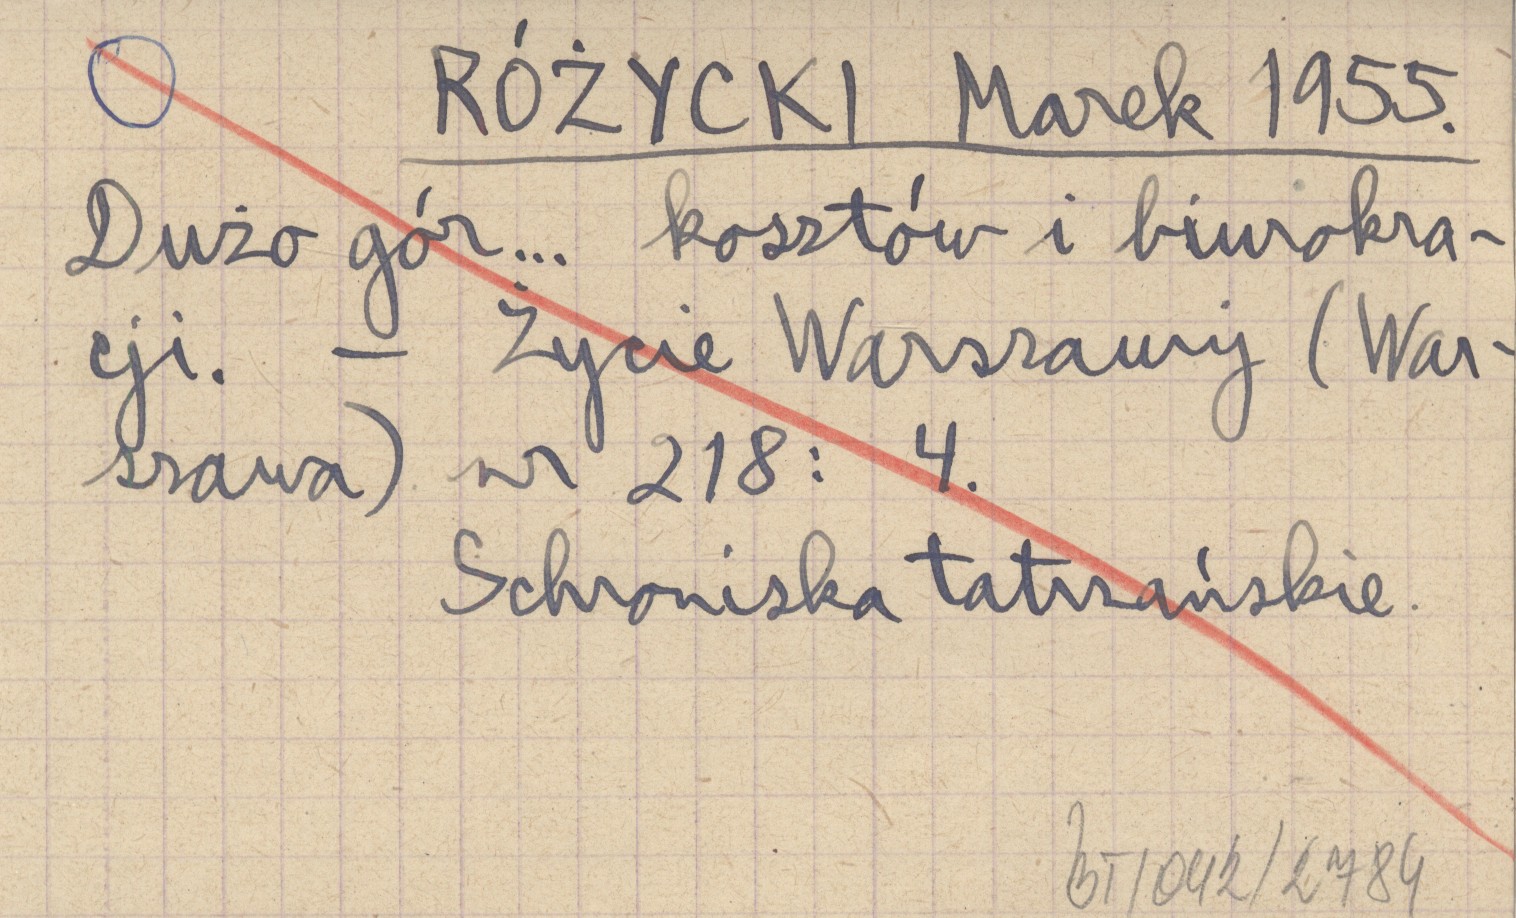 RÓŻYCKI Marek 1955.
Dużo gór... kosztów i biurokra-
cji. — Życie Warszawy (War-
szawa) nr 218: 4.
Schroniska tatrzańskie.
BT/042/2784